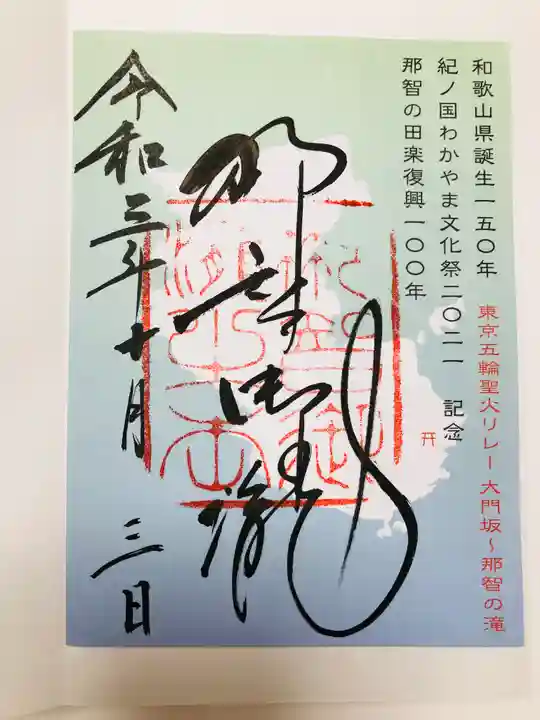 和歌山県誕生一五〇年
東京五輪聖火リレー 大門坂～那智の滝
紀ノ国わかやま文化祭二〇二一 記念
那智の田楽復興一〇〇年
那智御瀧
令和三年十月三日